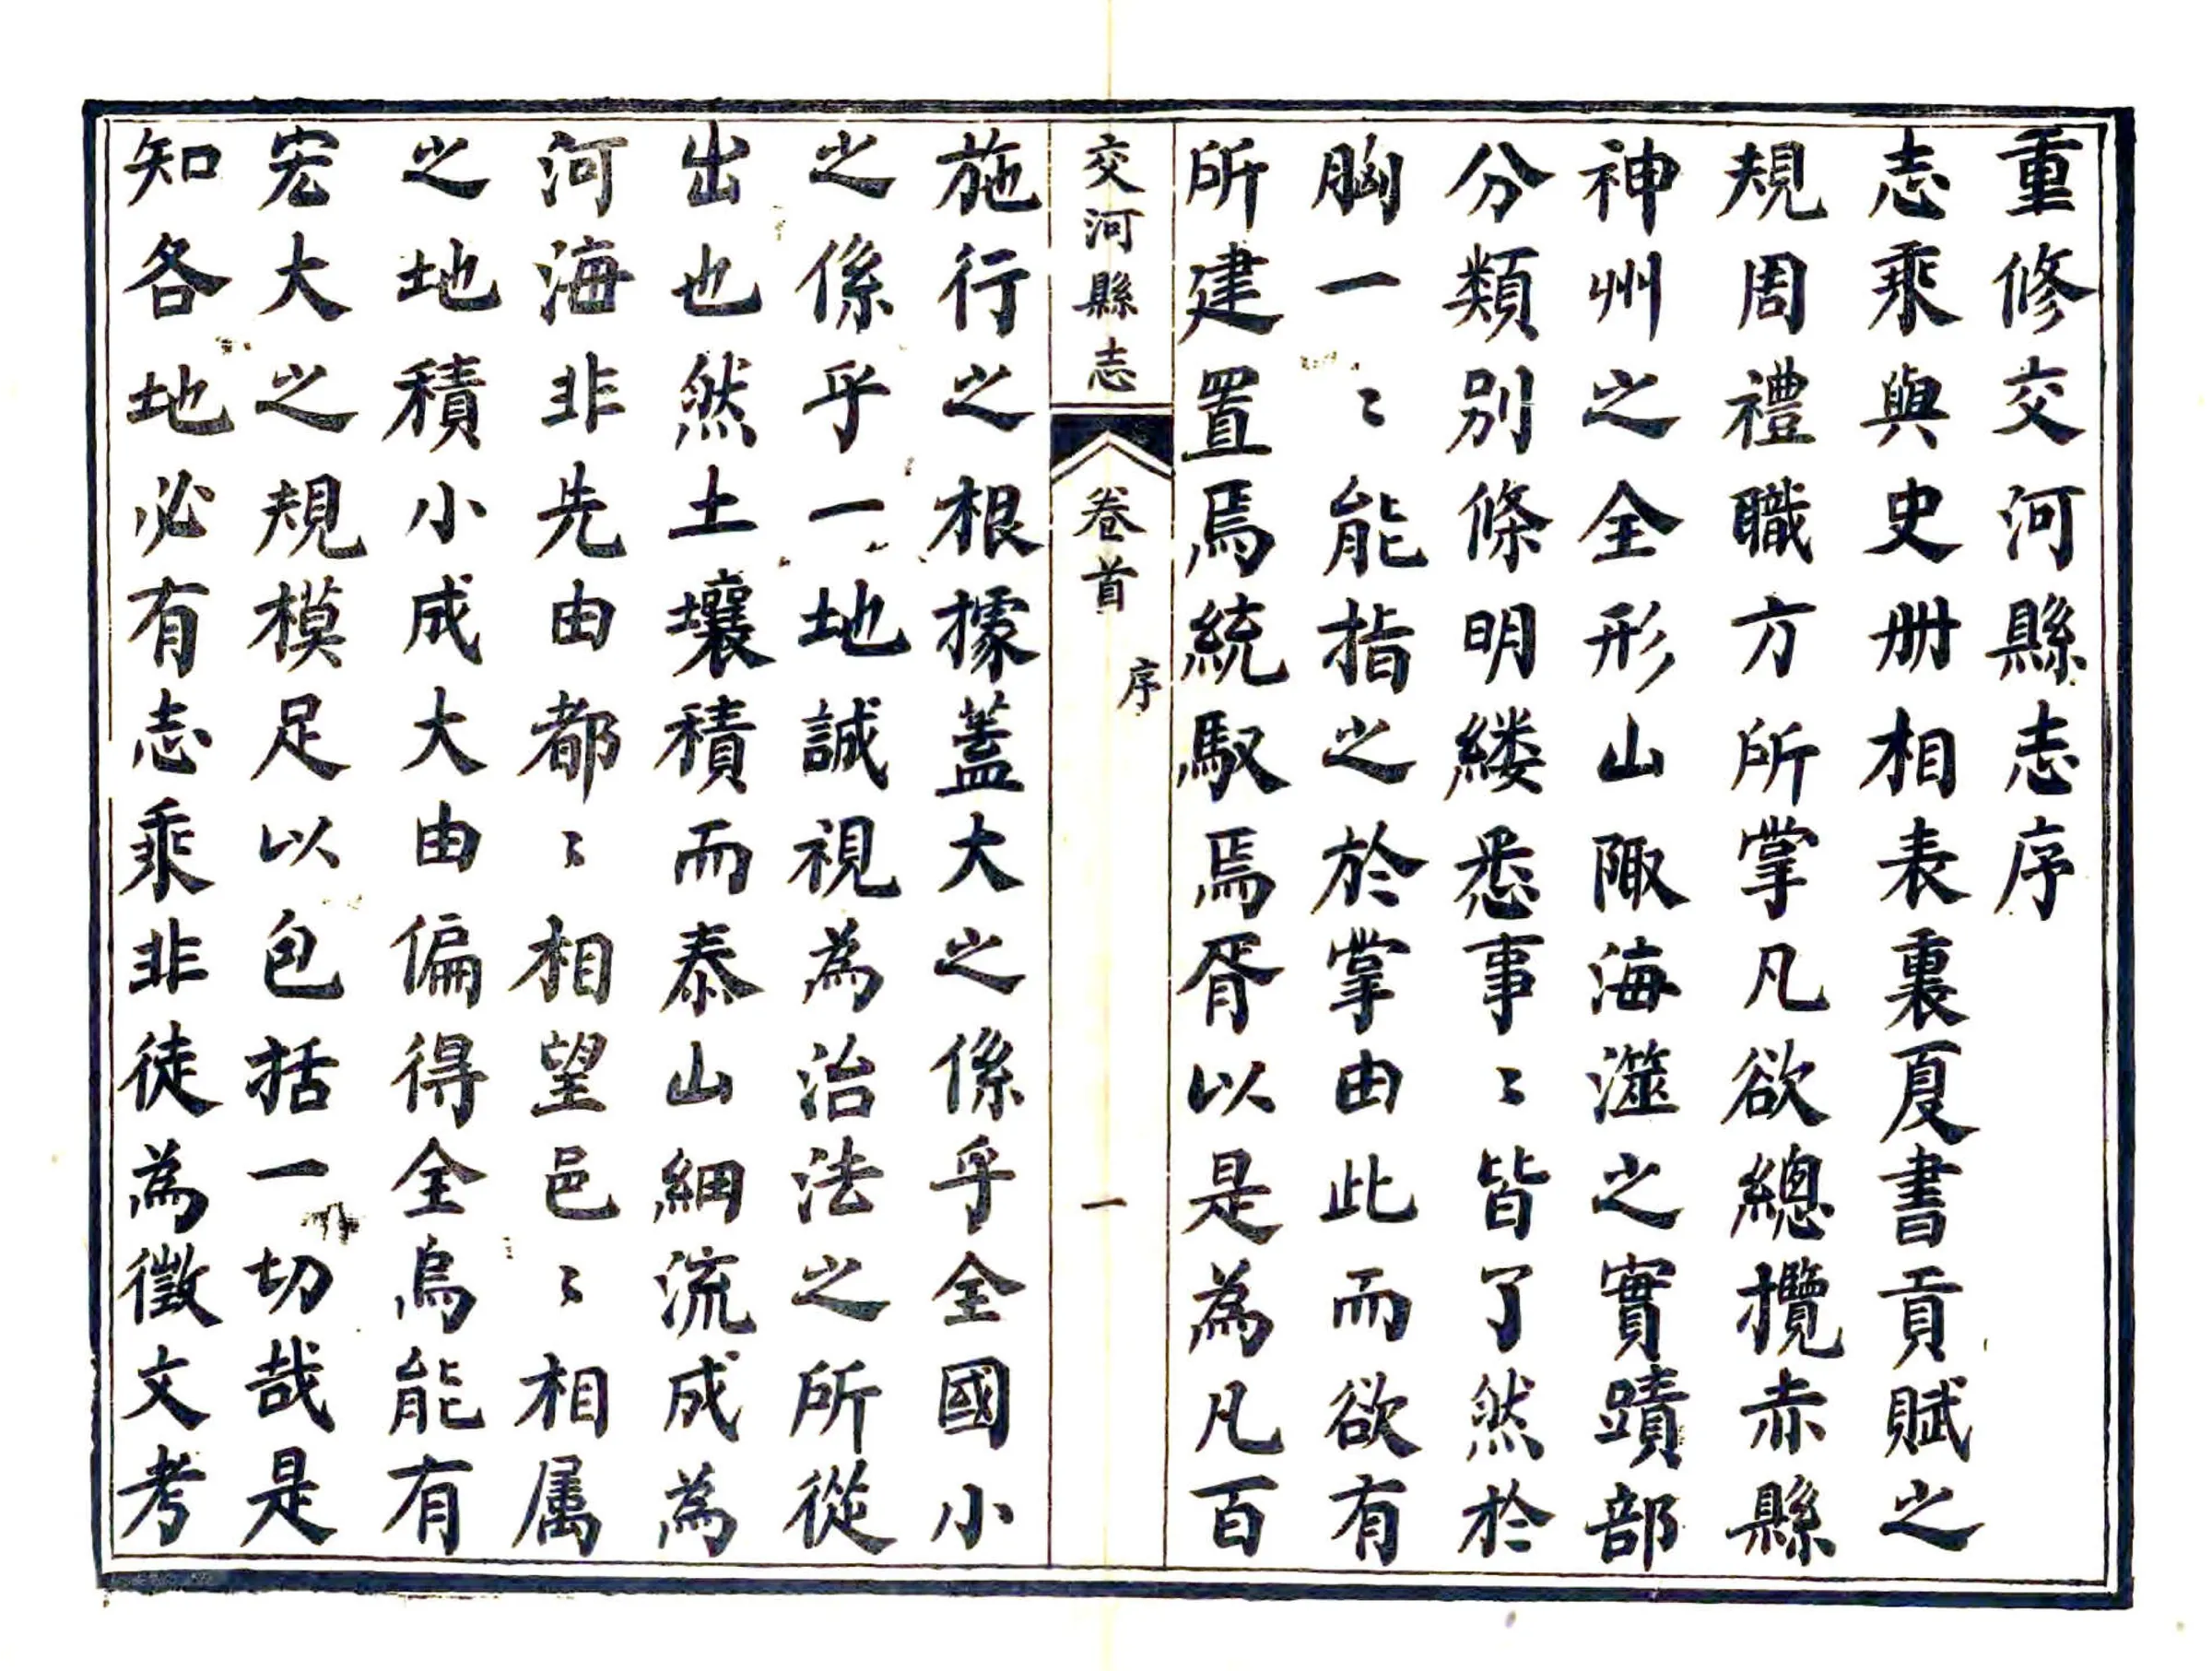 重修交河縣志序
志乘與史册相表裏夏書貢賦之
規周禮職方所掌凡欲總攬赤縣
神州之全形山陬海澨之實蹟部
分類別條明縷悉事〻皆了然於
胸一〻能指之於掌由此而欲有
所建置焉統馭焉胥以是為凡百
交河縣志
卷首
序
一
施行之根據蓋大之係乎全國小
之係乎一地誠視為治法之所從
出也然土壤積而泰山細流成為
河海非先由都〻相望邑〻相属
之地積小成大由偏得全烏能有
宏大之規模足以包括一切哉是
知各地必有志乘非徒為徵文考